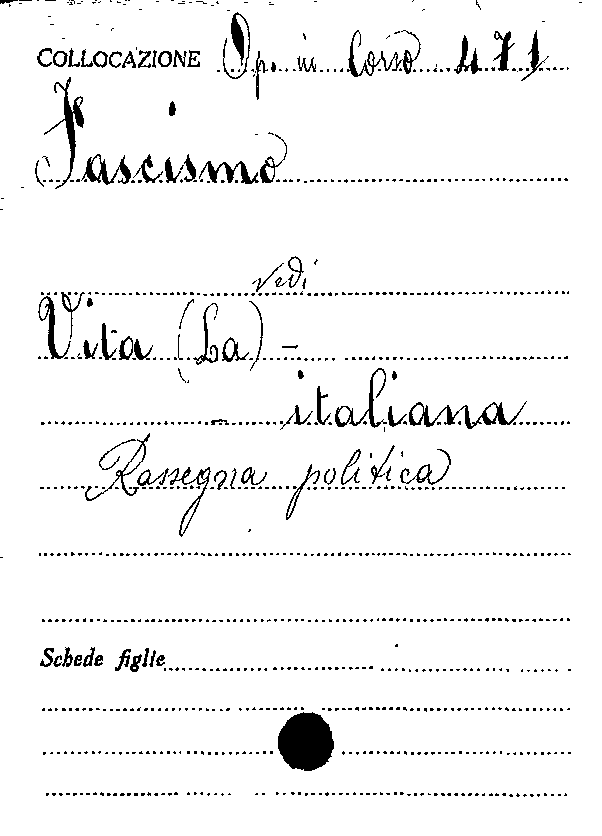 COLLOCAZIONE Op. in Corso 471
Fascismo
vedi
Vita (La) -
- italiana
Rassegna politica
Schede figlie